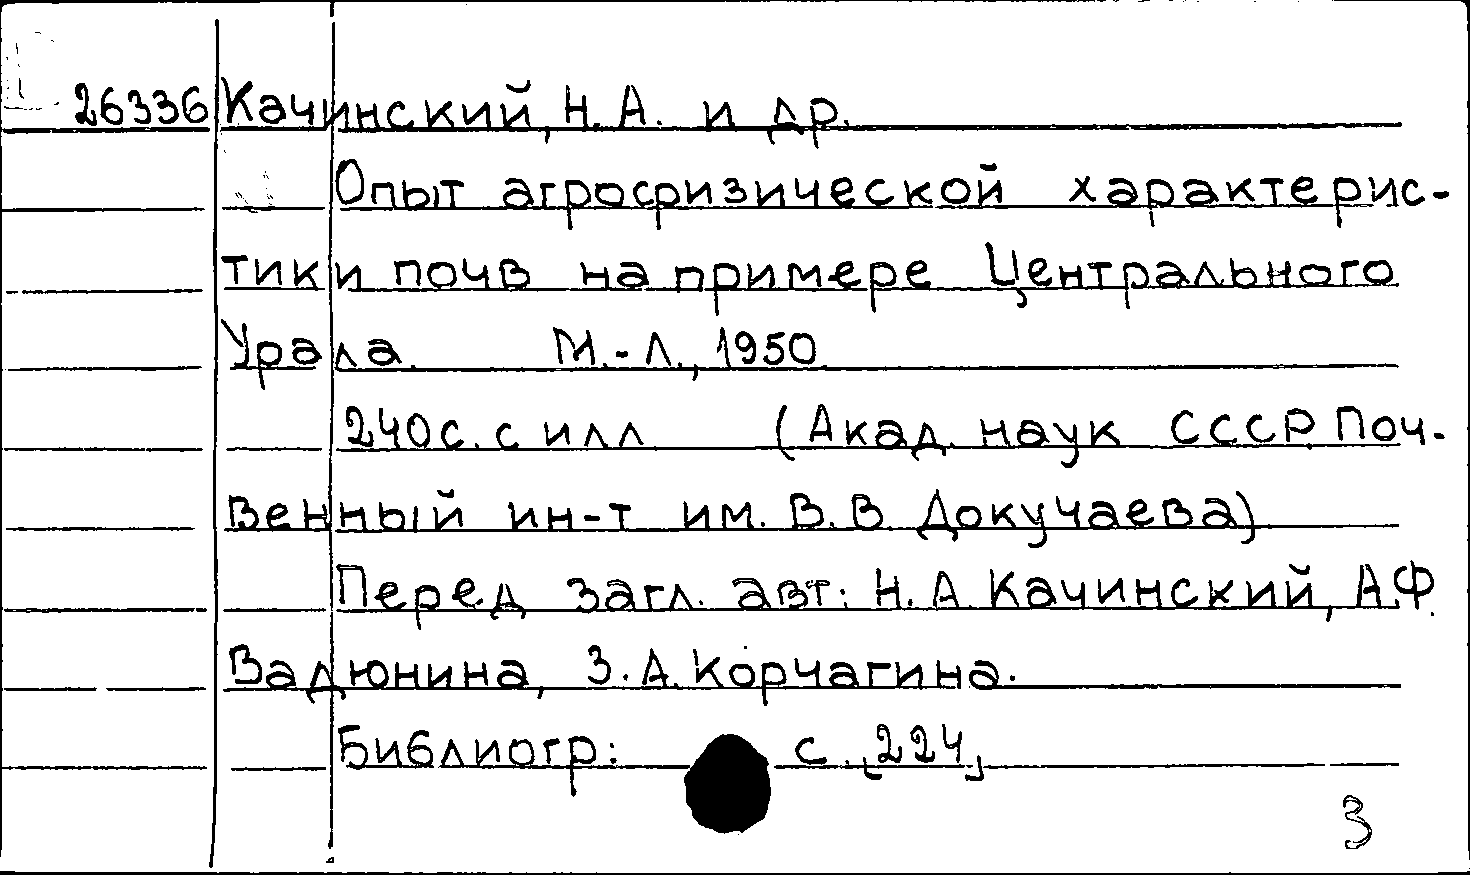 26336 Качинский, Н. А. и др.
Опыт агрофизической характерис-
тики почв на примере Центрального
Урала. М.-Л., 1950
240с. с илл (Акад. наук СССР Поч-
венный ин-т им. В. В. Докучаева)
Перед загл. авт: Н. А. Качинский, А.Ф.
Вадюнина, З. А. Корчагина.
Библиогр: с. [224]
3